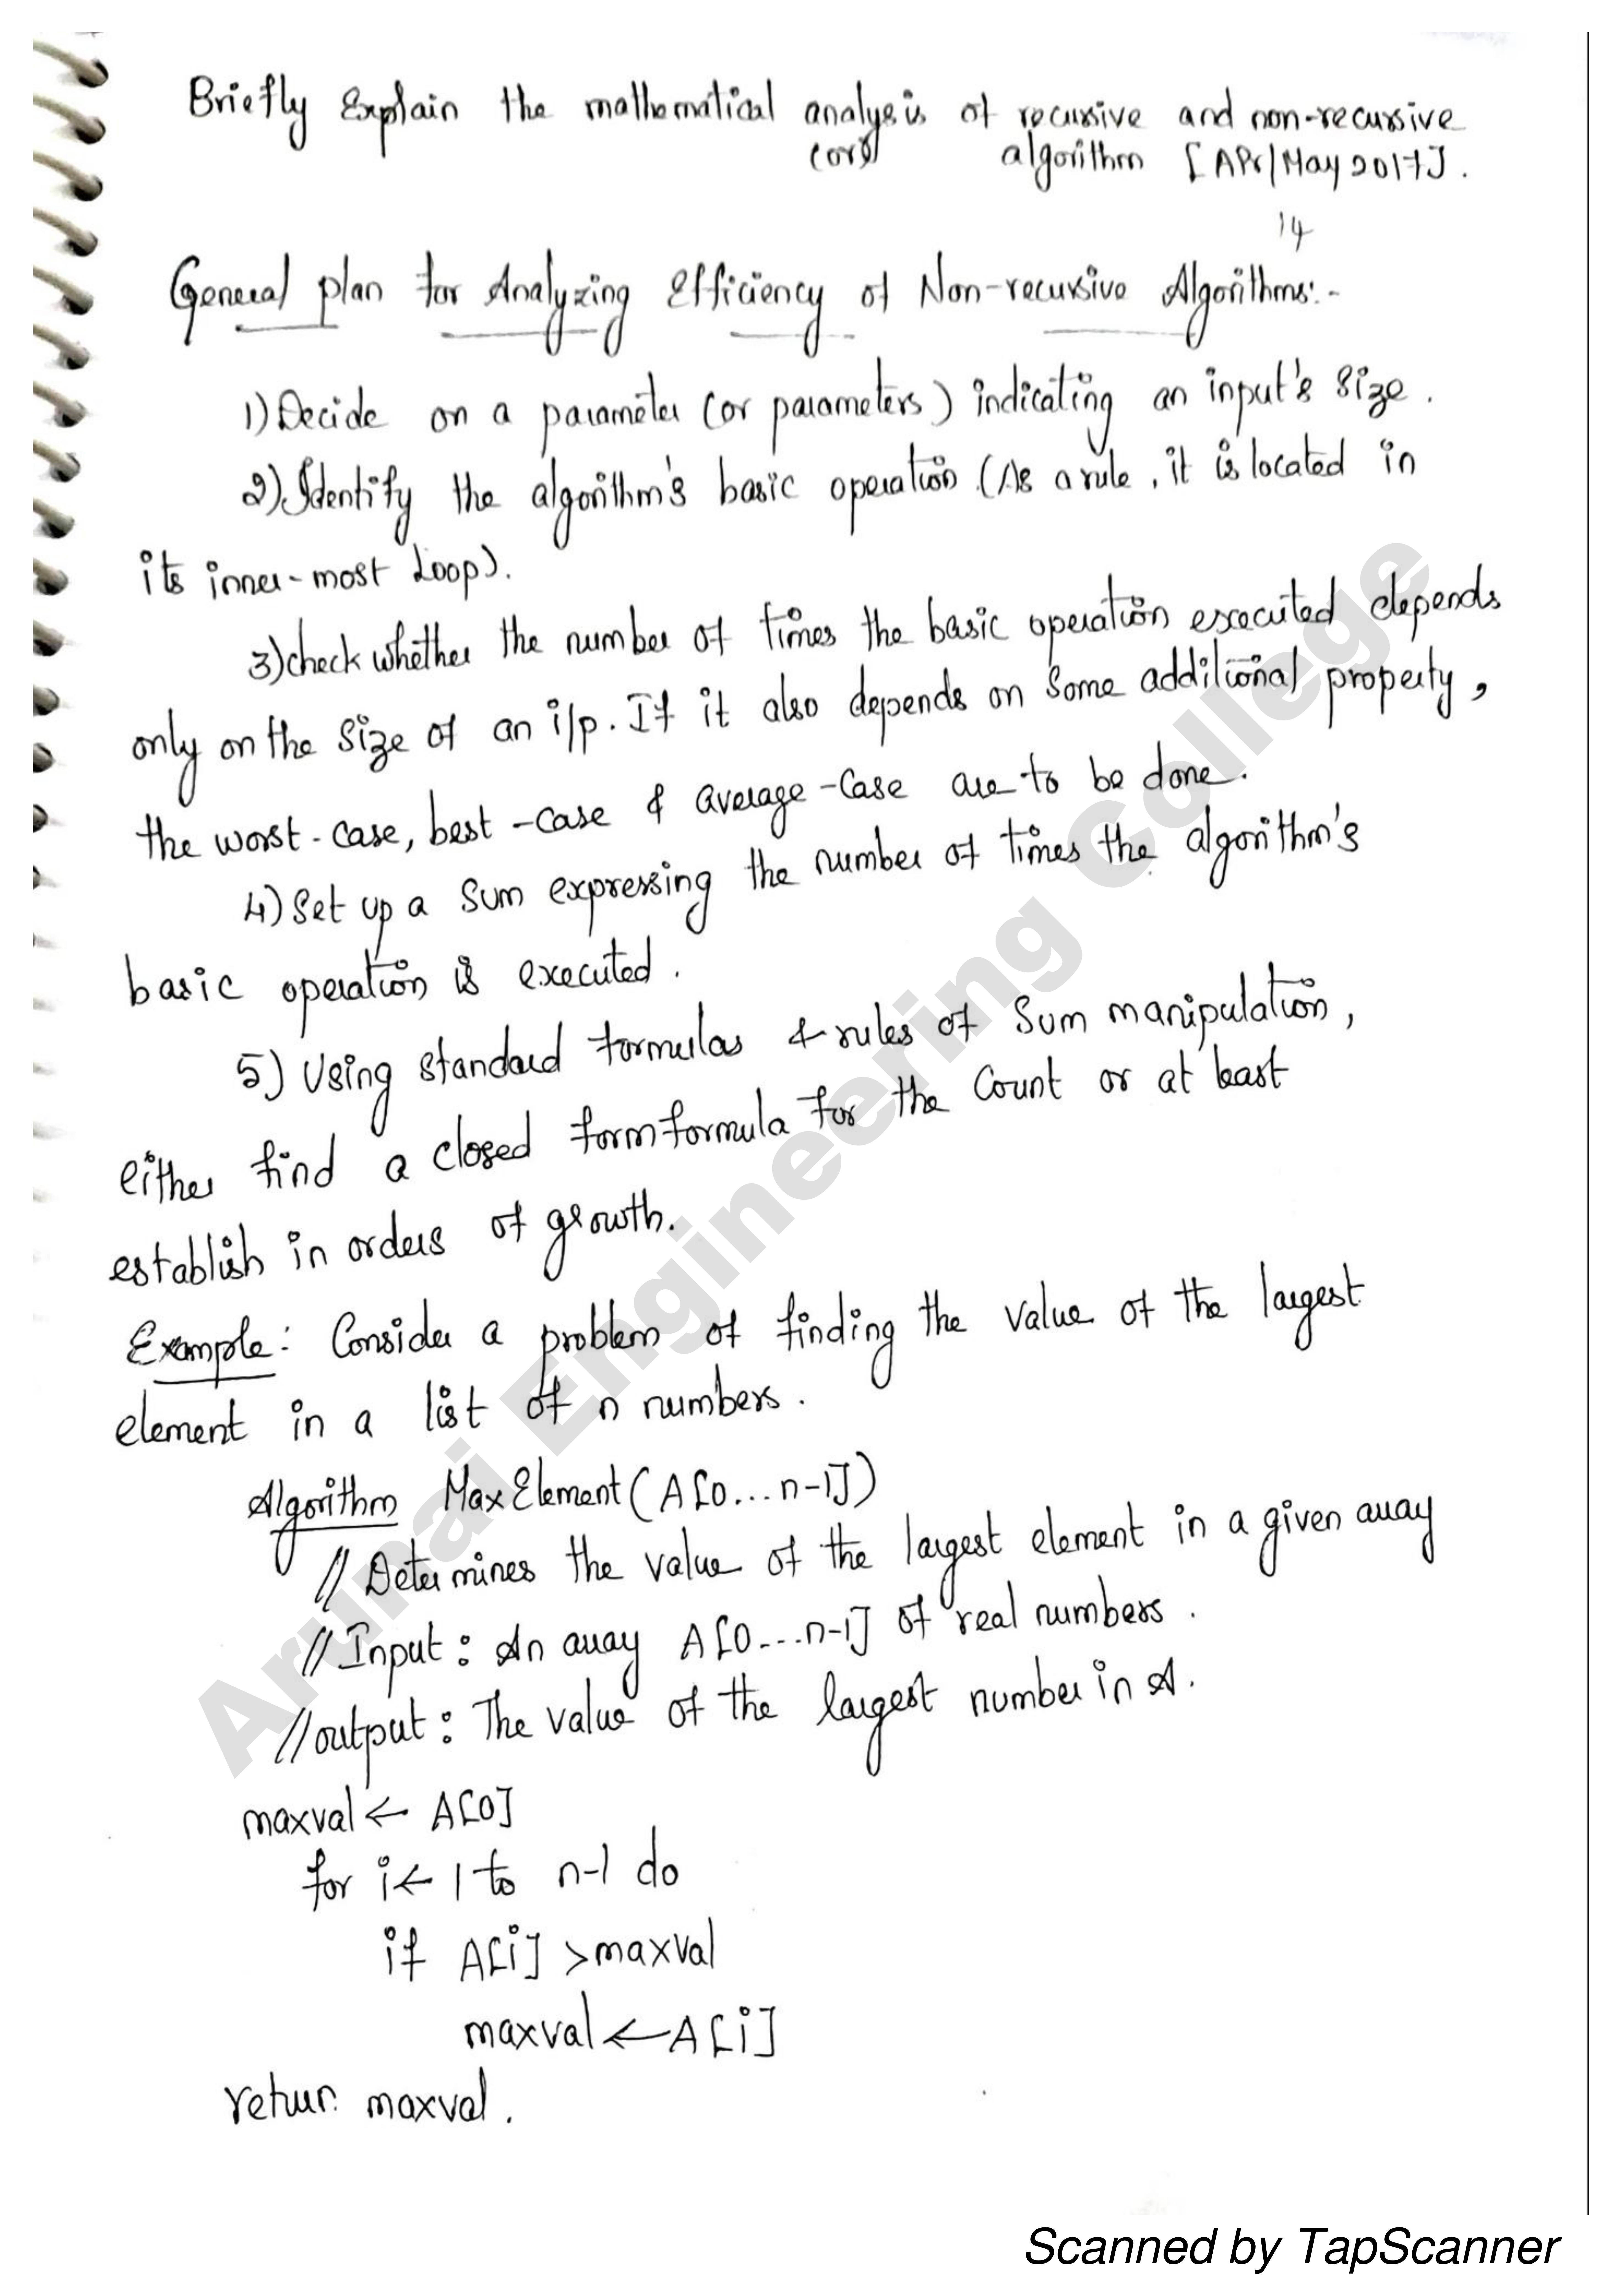 Briefly Explain the mathematical analysis of recursive and non-recursive
(or) algorithm [APr/May 2017].
14
General plan for Analyzing Efficiency of Non-recursive Algorithms:-
1) Decide on a parameter (or parameters) indicating an input's size.
2) Identify the algorithm's basic operation (As a rule, it is located in
its inner-most loop).
3) check whether the number of times the basic operation executed depends
only on the size of an i/p. If it also depends on some additional property,
the worst-case, best-case & average-case are to be done.
4) Set up a sum expressing the number of times the algorithm's
basic operation is executed.
5) Using standard formulas & rules of sum manipulation,
either find a closed form formula for the count or at least
establish in orders of growth.
Example: Consider a problem of finding the value of the largest
element in a list of n numbers.
Algorithm MaxElement(A[0...n-1])
// Determines the value of the largest element in a given array
// Input: An array A[0...n-1] of real numbers.
// output: The value of the largest number in A.
maxval ← A[0]
for i ← 1 to n-1 do
if A[i] > maxval
maxval ← A[i]
return maxval.
Arunai Engineering College
Scanned by TapScanner